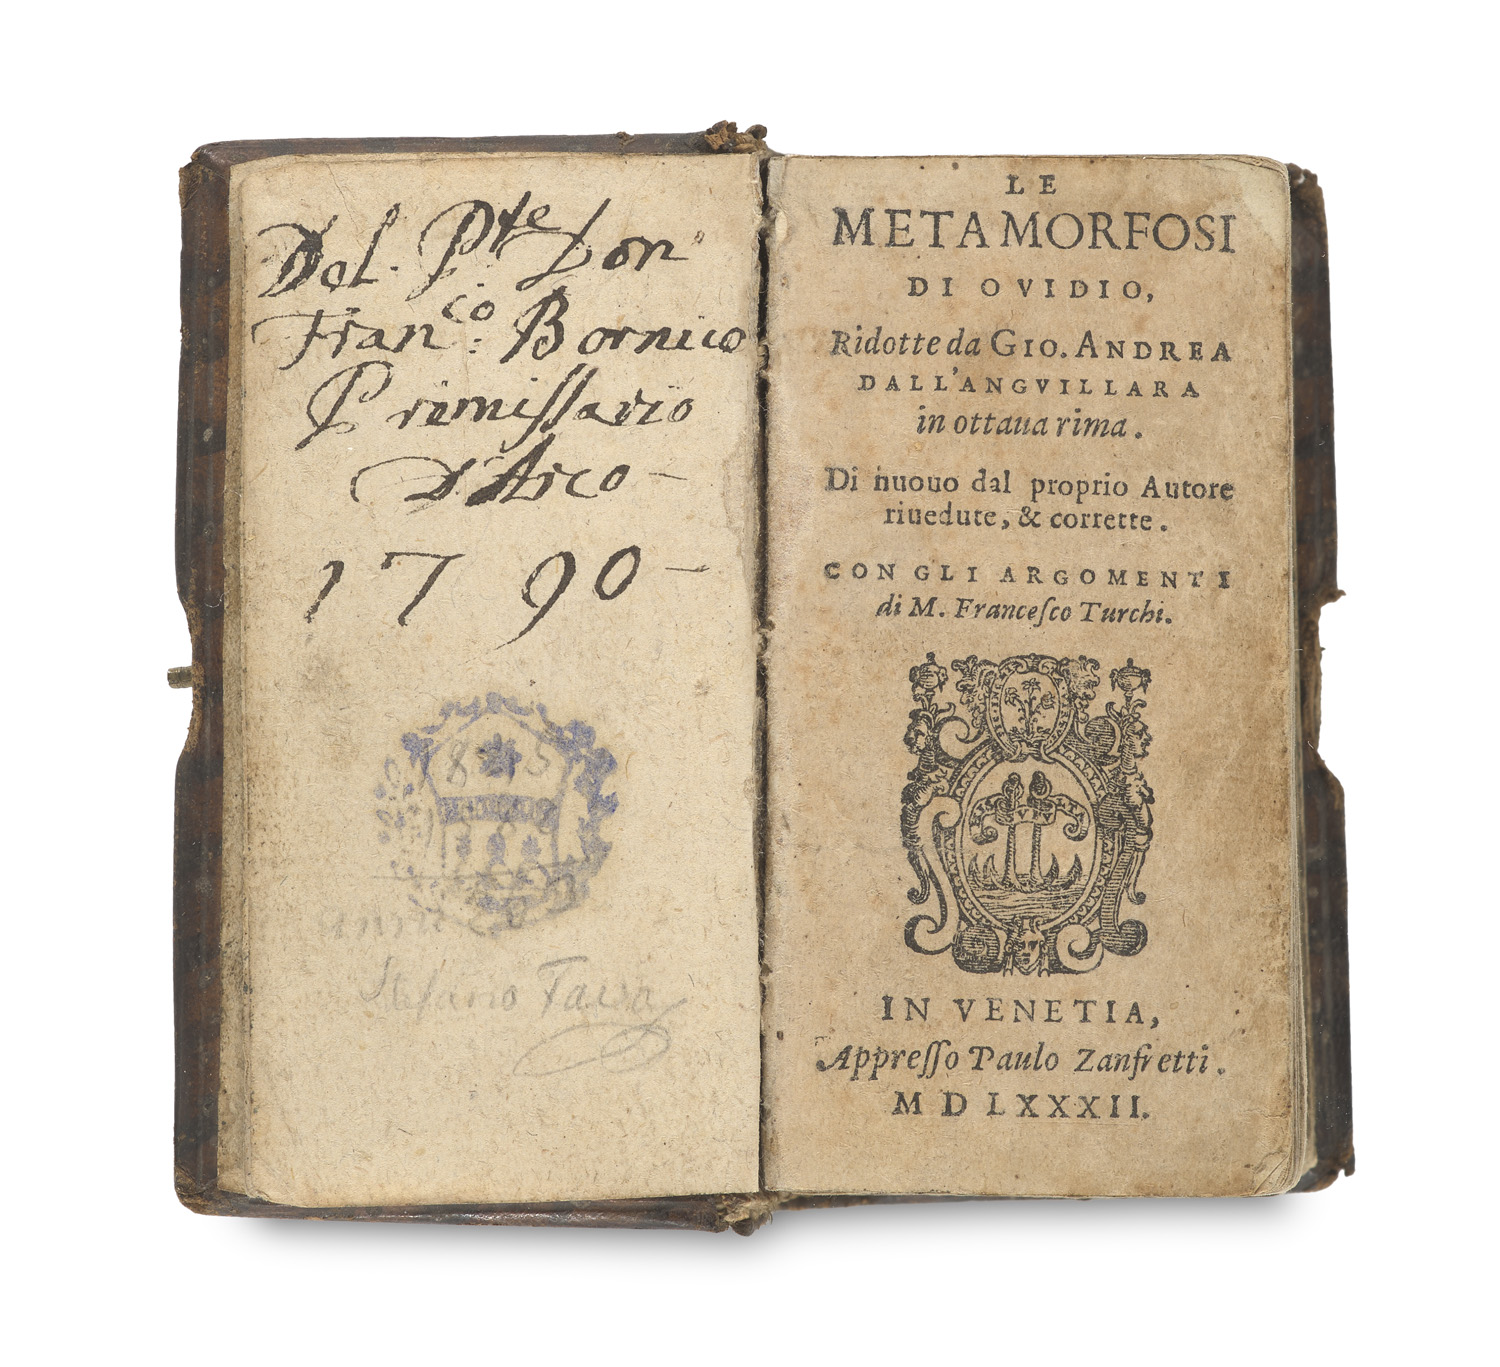 Del. Pte Don
Franco: Bornico
Primissario
D'Arco –
1790 –
Stefano
LE
METAMORFOSI
DI OVIDIO,
Ridotte da GIO. ANDREA
DALL'ANGVILLARA
in ottaua rima.
Di nuouo dal proprio Autore
riuedute, & corrette.
CON GLI ARGOMENTI
di M. Franceſco Turchi.
IN VENETIA,
Appreſſo Paulo Zanfretti.
M D LXXXII.